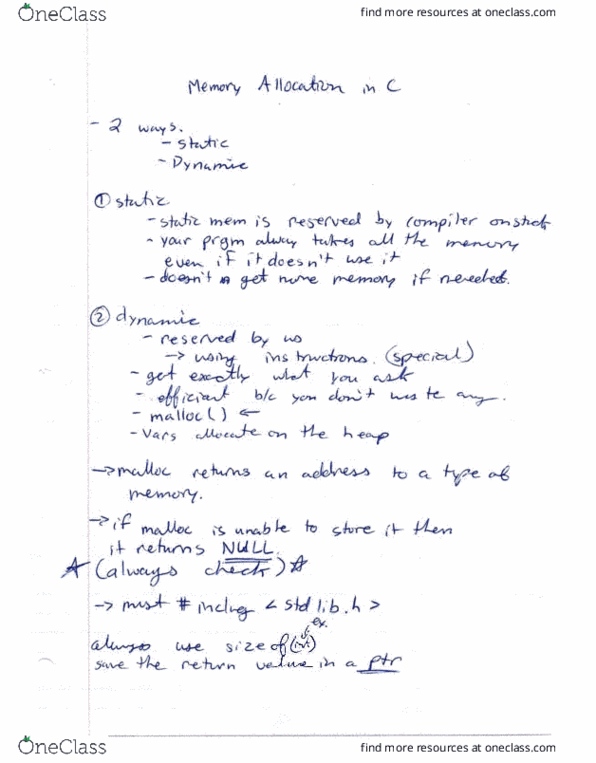 OneClass
find more resources at oneclass.com
Memory Allocation in C
- 2 ways.
- static
- Dynamic
① static
- static mem is reserved by compiler on stack
- your prgm always takes all the memory
even if it doesn't use it
- doesn't get more memory if needed.
② dynamic
- reserved by us
-> using instructions. (special)
- get exactly what you ask
- efficient b/c you don't waste any.
- malloc() ←
- Vars allocate on the heap
-> malloc returns an address to a type of
memory.
-> if malloc is unable to store it then
it returns NULL.
☆ (always check) ☆
-> must # include < stdlib.h >
ex.
always use sizeof(int)
save the return value in a ptr
OneClass
find more resources at oneclass.com